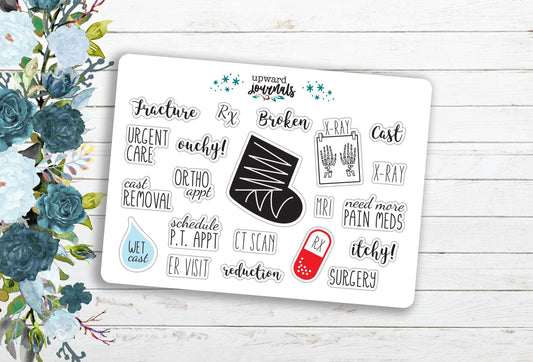 upward
Journals
Fracture
Rx
Broken
X-RAY
Cast
URGENT
CARE
ouchy!
X-RAY
cast
REMOVAL
ORTHO
appt
MRI
need more
PAIN MEDS
schedule
P.T. APPT
CT SCAN
Rx
itchy!
WET
cast
ER VISIT
reduction
SURGERY